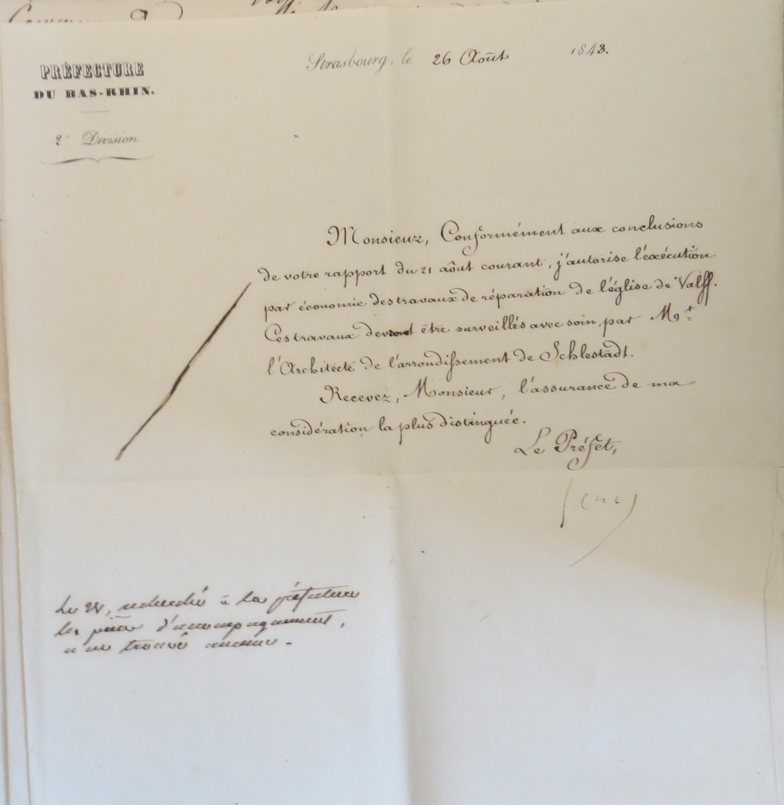 PRÉFECTURE
DU BAS-RHIN.
2e Division.
Strasbourg, le 26 Août 1843.
Monsieur, Conformément aux conclusions
de votre rapport du 21 août courant, j'autorise l'exécution
par économie des travaux de réparation de l'église de Valff.
Ces travaux devront être surveillés avec soin, par
l'Architecte de l'arrondissement de Schlestadt.
Recevez, Monsieur, l'assurance de ma
considération la plus distinguée.
Le Préfet,
à la préfecture
les pièces d'accompagnement,
trouvé aucune.